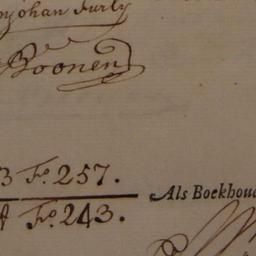 johan Furly
Boonen
3 Fo. 257.
Fo. 243.
Als Boekhou